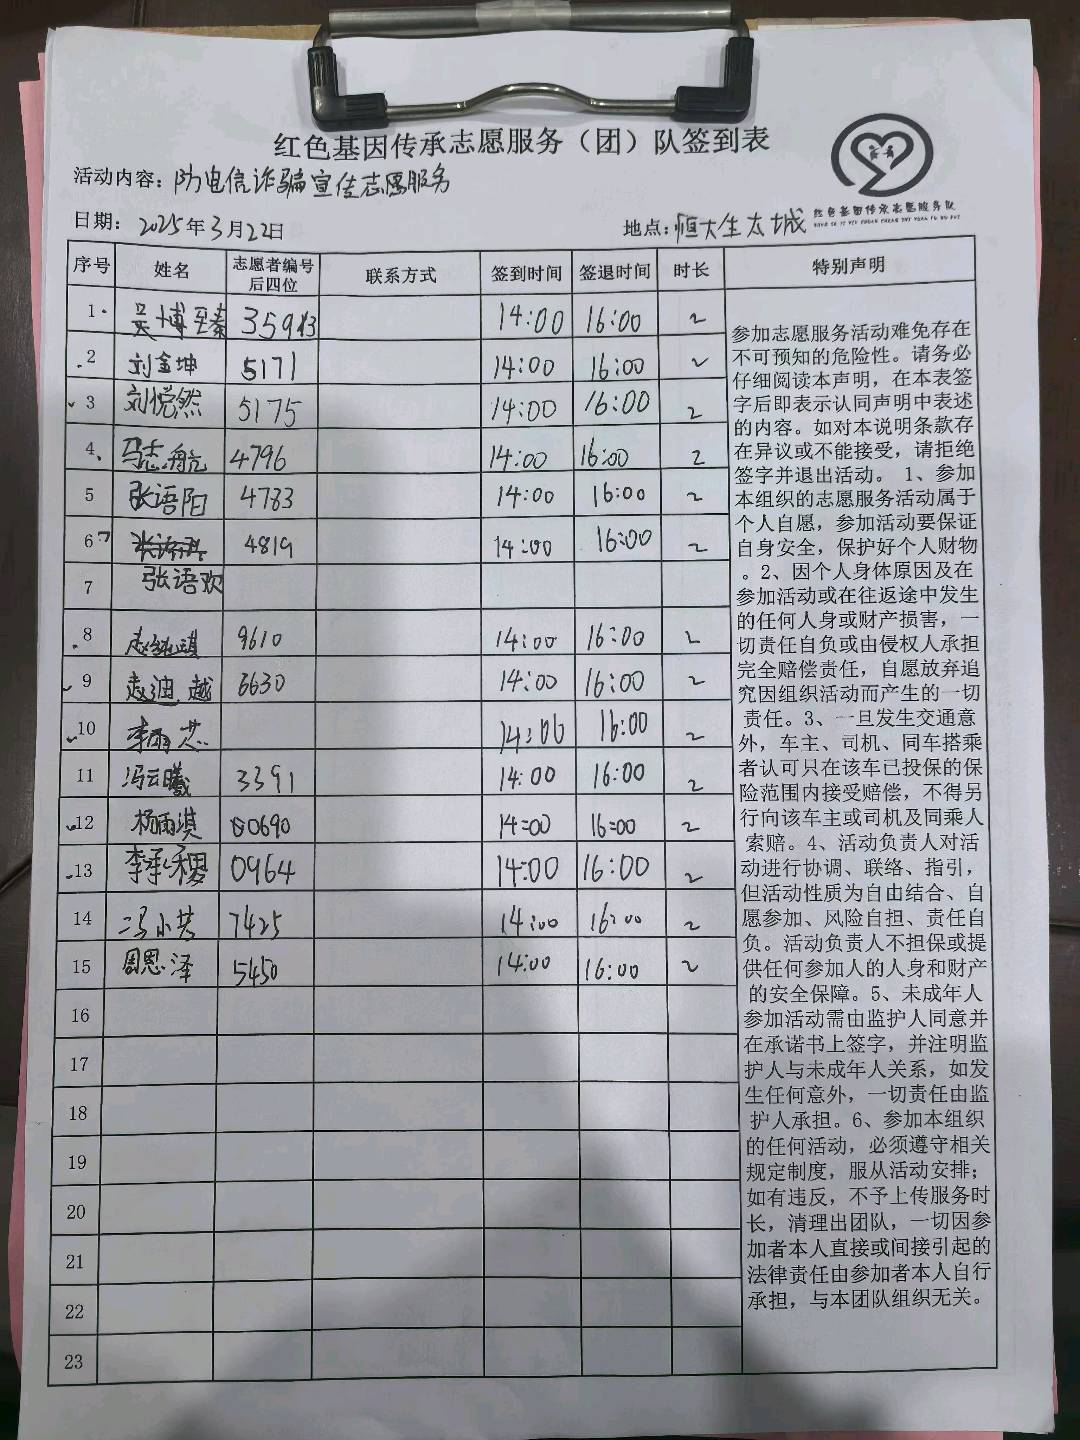 红色基因传承志愿服务（团）队签到表
活动内容：防电信诈骗宣传志愿服务
日期：2025年3月22日 地点：恒大生态城
红色基因传承志愿服务队
序号 姓名 志愿者编号后四位 联系方式 签到时间 签退时间 时长 特别声明
1 吴博 35943 14:00 16:00 2
2 刘金坤 5171 14:00 16:00 2
3 刘悦然 5175 14:00 16:00 2
4 马志航 4796 14:00 16:00 2
5 张语阳 4783 14:00 16:00 2
6 4819 14:00 16:00 2
7 张语欢
8 9610 14:00 16:00 2
9 6630 14:00 16:00 2
10 李雨芯 14:00 16:00 2
11 冯云曦 3391 14:00 16:00 2
12 杨雨淇 0690 14:00 16:00 2
13 李承稷 0964 14:00 16:00 2
14 7425 14:00 16:00 2
15 周思泽 5450 14:00 16:00 2
16
17
18
19
20
21
22
23
参加志愿服务活动难免存在
不可预知的危险性。请务必
仔细阅读本声明，在本表签
字后即表示认同声明中表述
的内容。如对本说明条款存
在异议或不能接受，请拒绝
签字并退出活动。 1、参加
本组织的志愿服务活动属于
个人自愿，参加活动要保证
自身安全，保护好个人财物
。2、因个人身体原因及在
参加活动或在往返途中发生
的任何人身或财产损害，一
切责任自负或由侵权人承担
完全赔偿责任，自愿放弃追
究因组织活动而产生的一切
责任。3、一旦发生交通意
外，车主、司机、同车搭乘
者认可只在该车已投保的保
险范围内接受赔偿，不得另
行向该车主或司机及同乘人
索赔。4、活动负责人对活
动进行协调、联络、指引，
但活动性质为自由结合、自
愿参加、风险自担、责任自
负。活动负责人不担保或提
供任何参加人的人身和财产
的安全保障。5、未成年人
参加活动需由监护人同意并
在承诺书上签字，并注明监
护人与未成年人关系，如发
生任何意外，一切责任由监
护人承担。6、参加本组织
的任何活动，必须遵守相关
规定制度，服从活动安排；
如有违反，不予上传服务时
长，清理出团队，一切因参
加者本人直接或间接引起的
法律责任由参加者本人自行
承担，与本团队组织无关。